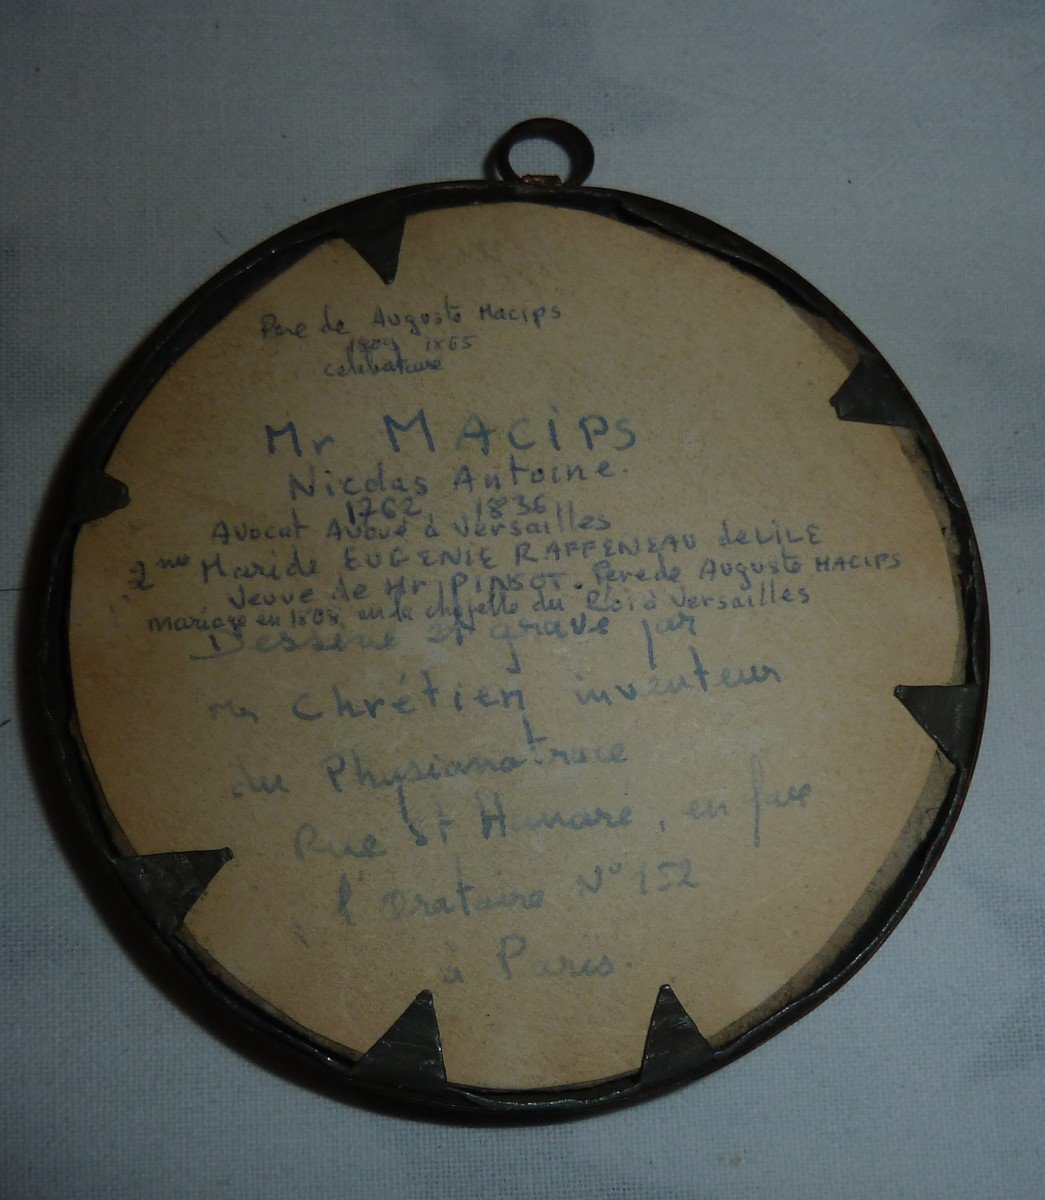 Pere de Auguste Macips
1809 1865
celibataire
Mr MACIPS
Nicolas Antoine.
1762 1836
Avocat Avoué à Versailles
2me Mari de EUGENIE RAFFENEAU de LILE
Veuve de Mr PINSOT. Pere de Auguste MACIPS
mariage en 1808 en la chapelle du Roi à Versailles
Dessiné et gravé par
Chrétien inventeur
du Physianotrace
Rue St Honoré, en face
l'Oratoire N° 152
à Paris.